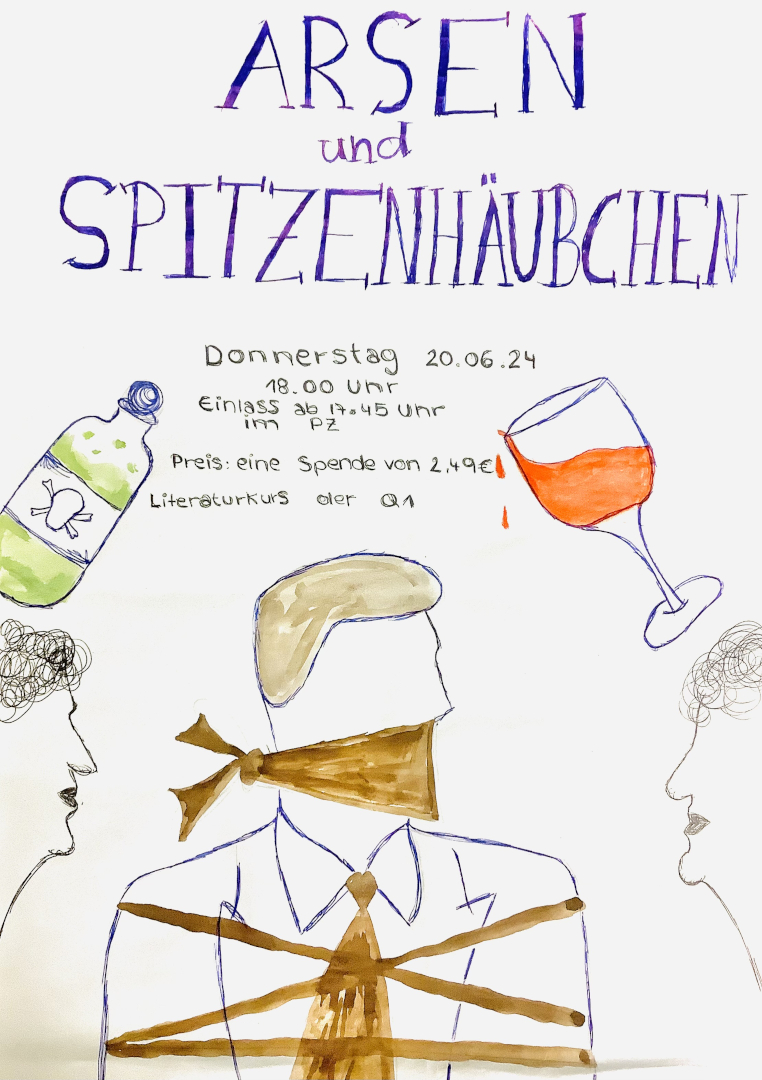 ARSEN
und
SPITZENHÄUBCHEN
Donnerstag 20.06.24
18.00 Uhr
Einlass ab 17.45 Uhr
im PZ
Preis: eine Spende von 2,49€
Literaturkurs der Q1